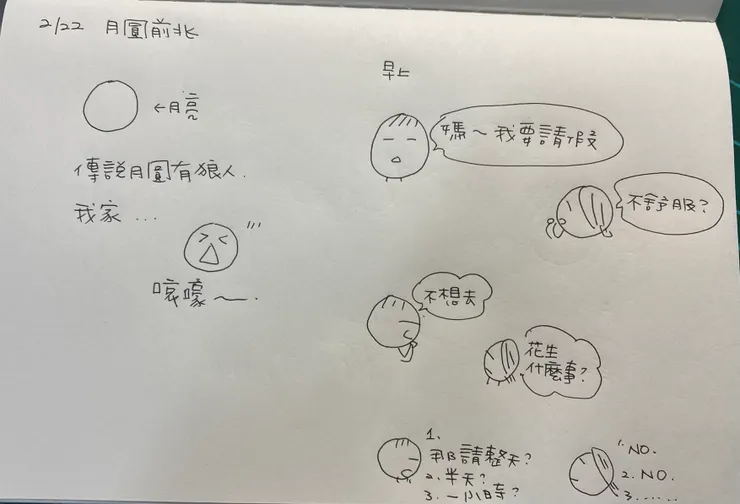 2/22 月圓前北
←月亮
傳說月圓有狼人.
我家...
哀嚎～.
早上
媽～我要請假
不舒服?
不想去
花生
什麼事?
1.
那請整天?
2.半天?
3.一小時?
1.NO.
2.NO.
3.......